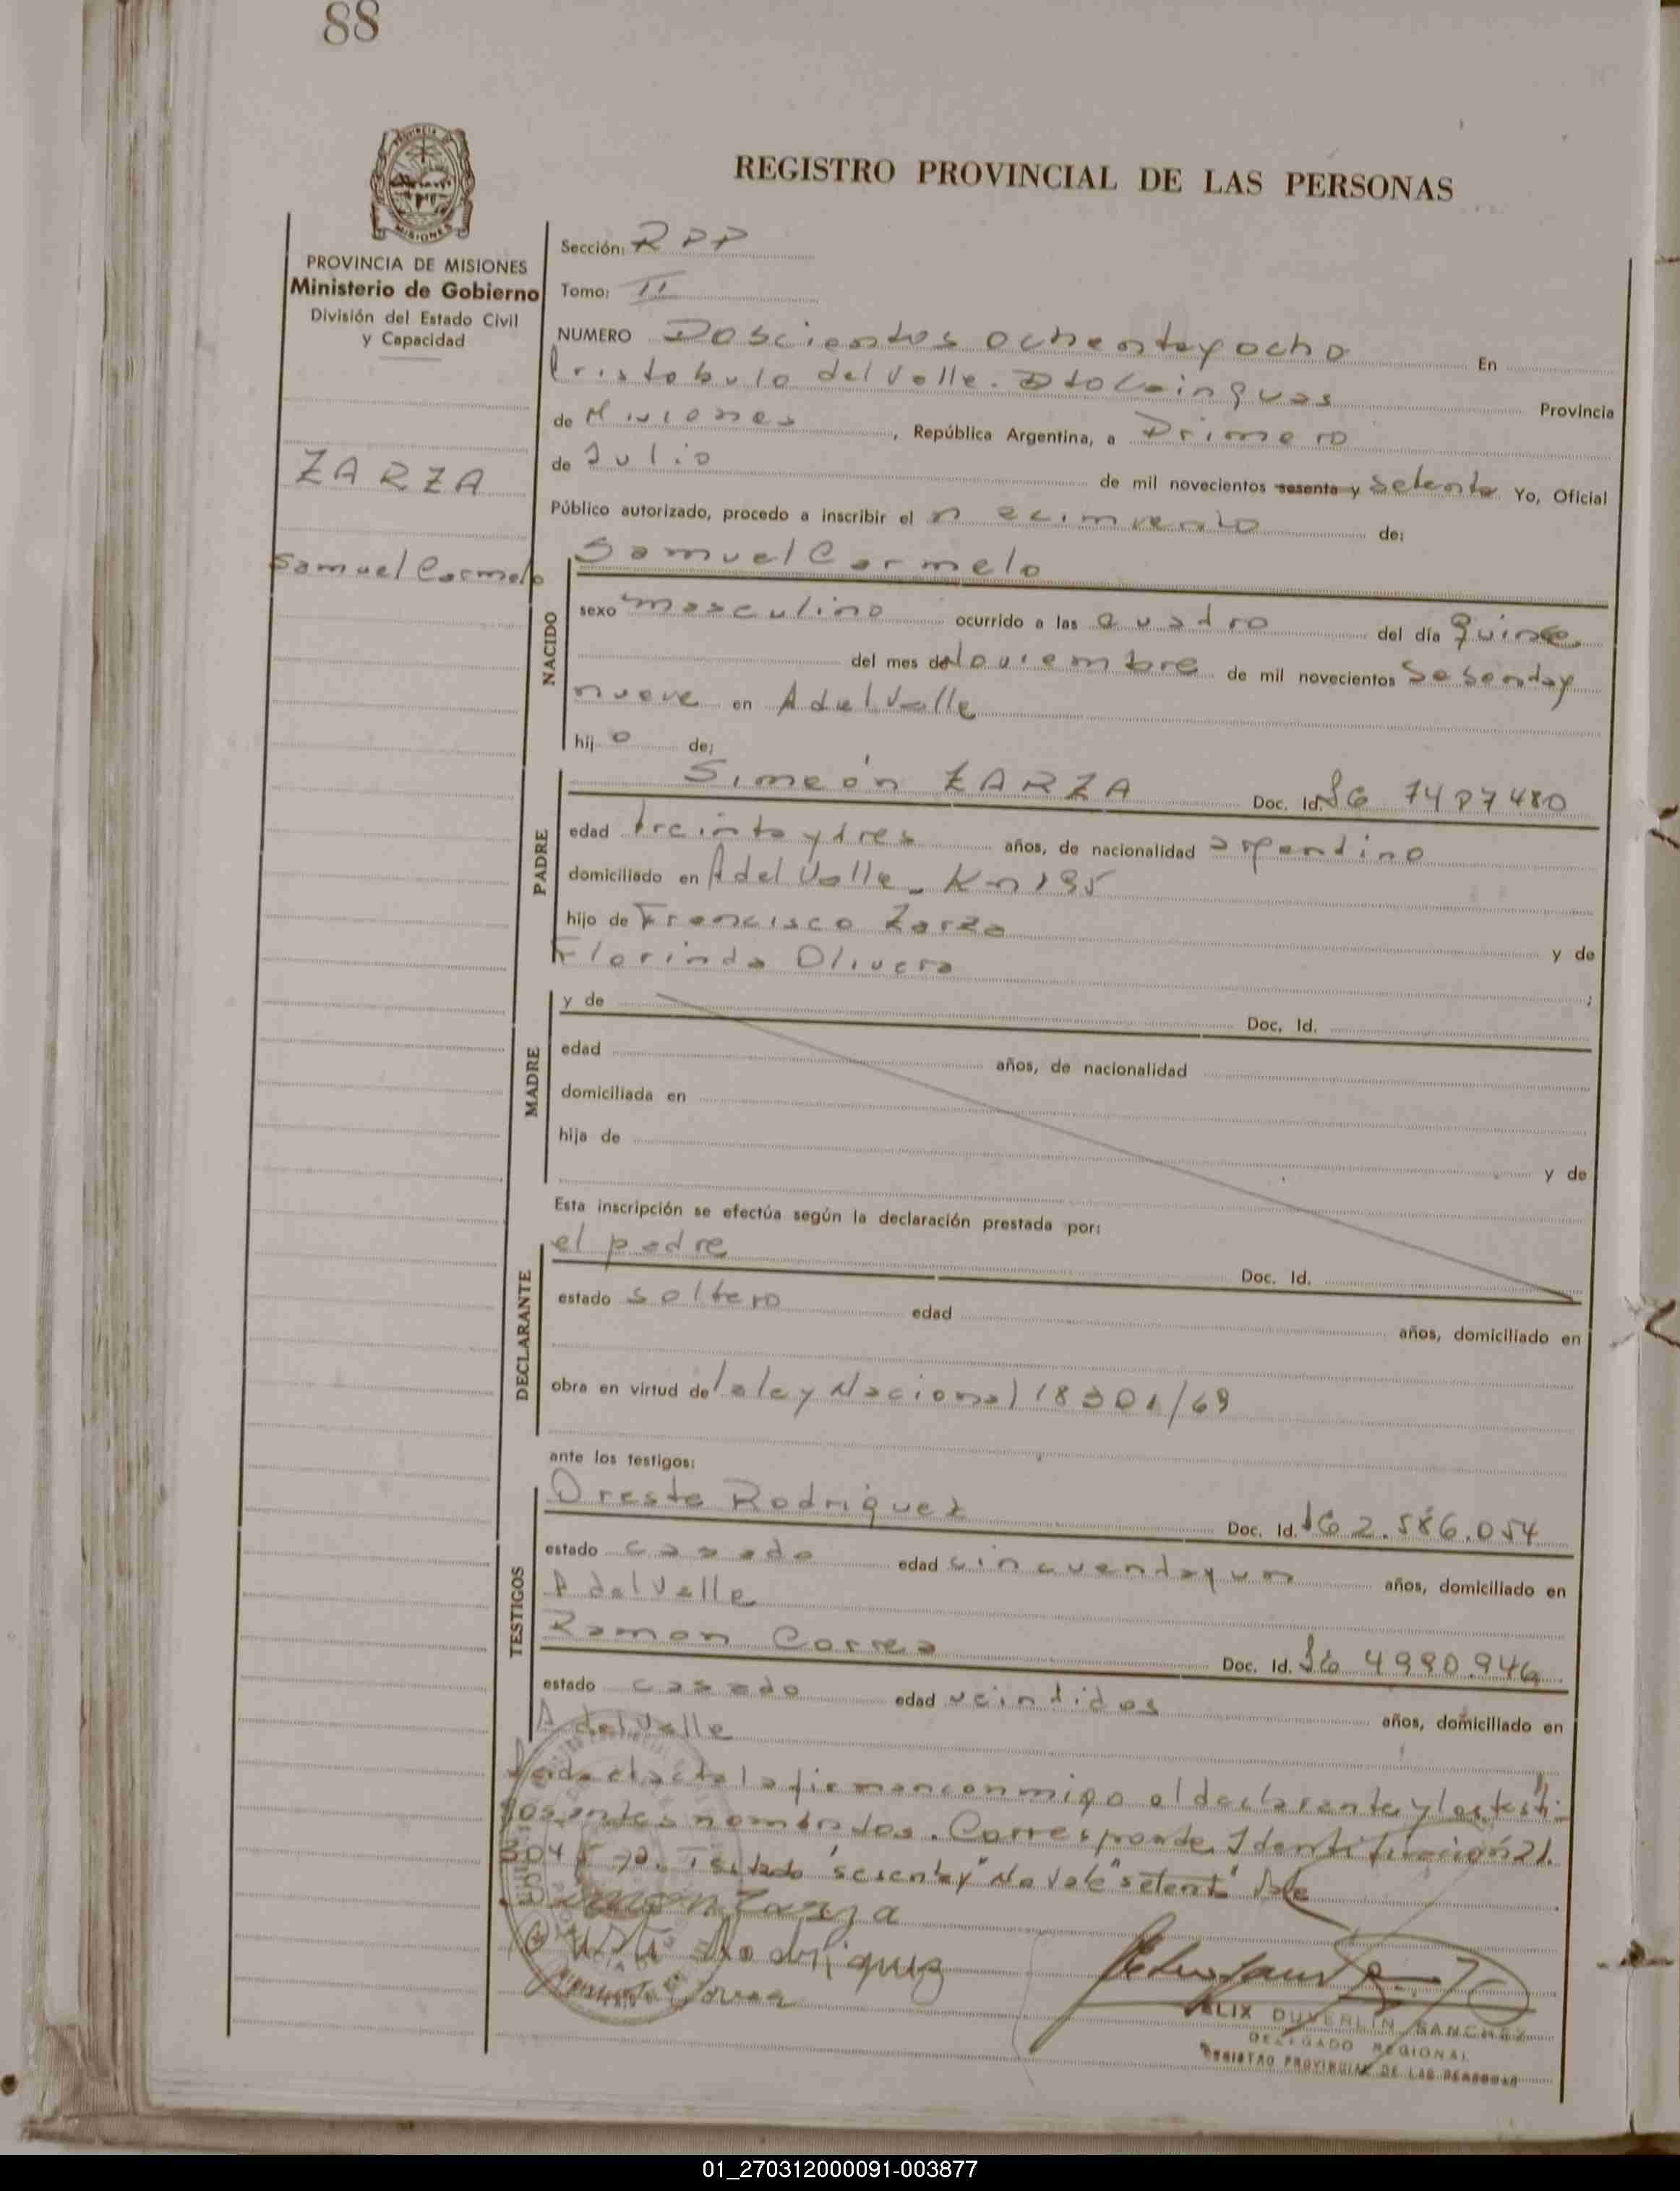 88
REGISTRO PROVINCIAL DE LAS PERSONAS
PROVINCIA DE MISIONES
Ministerio de Gobierno
División del Estado Civil
y Capacidad
ZARZA
Samuel Carmelo
Sección: RPP
Tomo: II
NUMERO Doscientos ochentayocho En
Aristobulo del Valle. Dto Cainguas Provincia
de Misiones, República Argentina, a Primero
de Julio de mil novecientos sesenta y setenta Yo, Oficial
Público autorizado, procedo a inscribir el nacimiento de:
NACIDO
Samuel Carmelo
sexo masculino ocurrido a las cuatro del día quince
del mes de Noviembre de mil novecientos sesentay
nueve en A del Valle
hijo de:
PADRE
Simeón ZARZA Doc. Id.
edad treinta y tres años, de nacionalidad argentino
domiciliado en A del Valle - Km 195
hijo de Francisco Zarza y de
Florinda Olivera ;
MADRE
y de Doc. Id.
edad años, de nacionalidad
domiciliada en
hija de y de
Esta inscripción se efectúa según la declaración prestada por:
DECLARANTE
el padre Doc. Id.
estado soltero edad años, domiciliado en
obra en virtud de la ley Nacional 18301/69
ante los testigos:
TESTIGOS
Oreste Rodriguez Doc. Id. 2.586.054
estado casado edad cincuentayun años, domiciliado en
A del Valle
Ramon Correa Doc. Id. 4990.946
estado casado edad veintidos años, domiciliado en
A del Valle
Leida el acta la firman conmigo el declarante y los testi-
gos antes nombrados. Corresponde Identificación 21.
Testado "sesenta y" No Vale "setenta" Vale
Simeon Zarza
Oreste Rodriguez
FELIX DUVERLIN SANCHEZ
DELEGADO REGIONAL
REGISTRO PROVINCIAL DE LAS PERSONAS
01_270312000091-003877